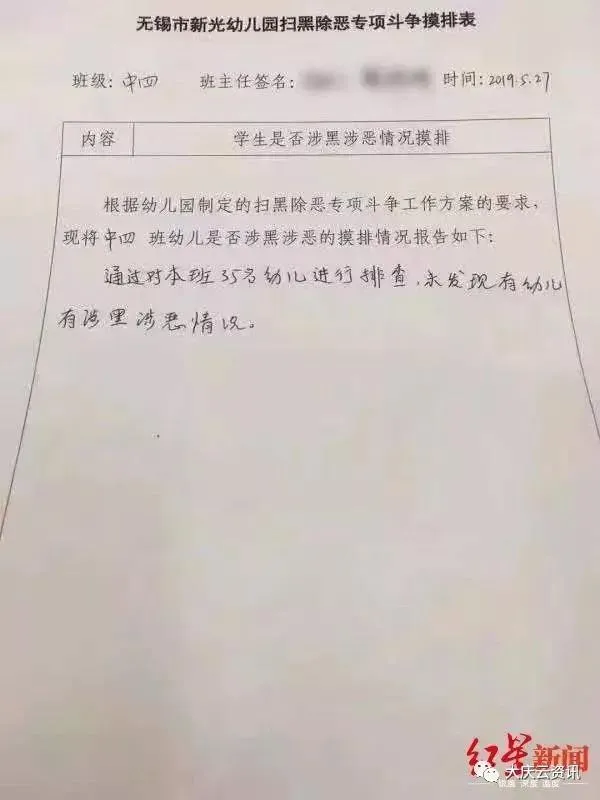 无锡市新光幼儿园扫黑除恶专项斗争摸排表
班级：中四 班主任签名： 时间：2019.5.27
内容 学生是否涉黑涉恶情况摸排
根据幼儿园制定的扫黑除恶专项斗争工作方案的要求，
现将中四 班幼儿是否涉黑涉恶的摸排情况报告如下：
通过对本班35名幼儿进行排查，未发现有幼儿
有涉黑涉恶情况。
红星新闻
大庆云资讯
锐度 深度 温度